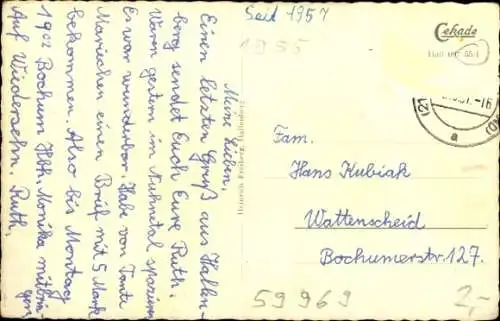 Meine Lieben,
Einen letzten Gruß aus Hallen-
berg sendet Euch Eure Ruth.
Waren gestern im Nuhnetal spazieren
Es war wunderbar. Habe von Tante
Mariechen einen Brief mit 5 Mark
bekommen. Also bis Montag
19 02 Bochum Hbh. Monika mitbrin-
gen
Auf Wiedersehn. Ruth,
Seid 1957
1955
Cekade
a
Fam.
Hans Kubiak
Wattenscheid
Bochumerstr 127.
59969
2,-